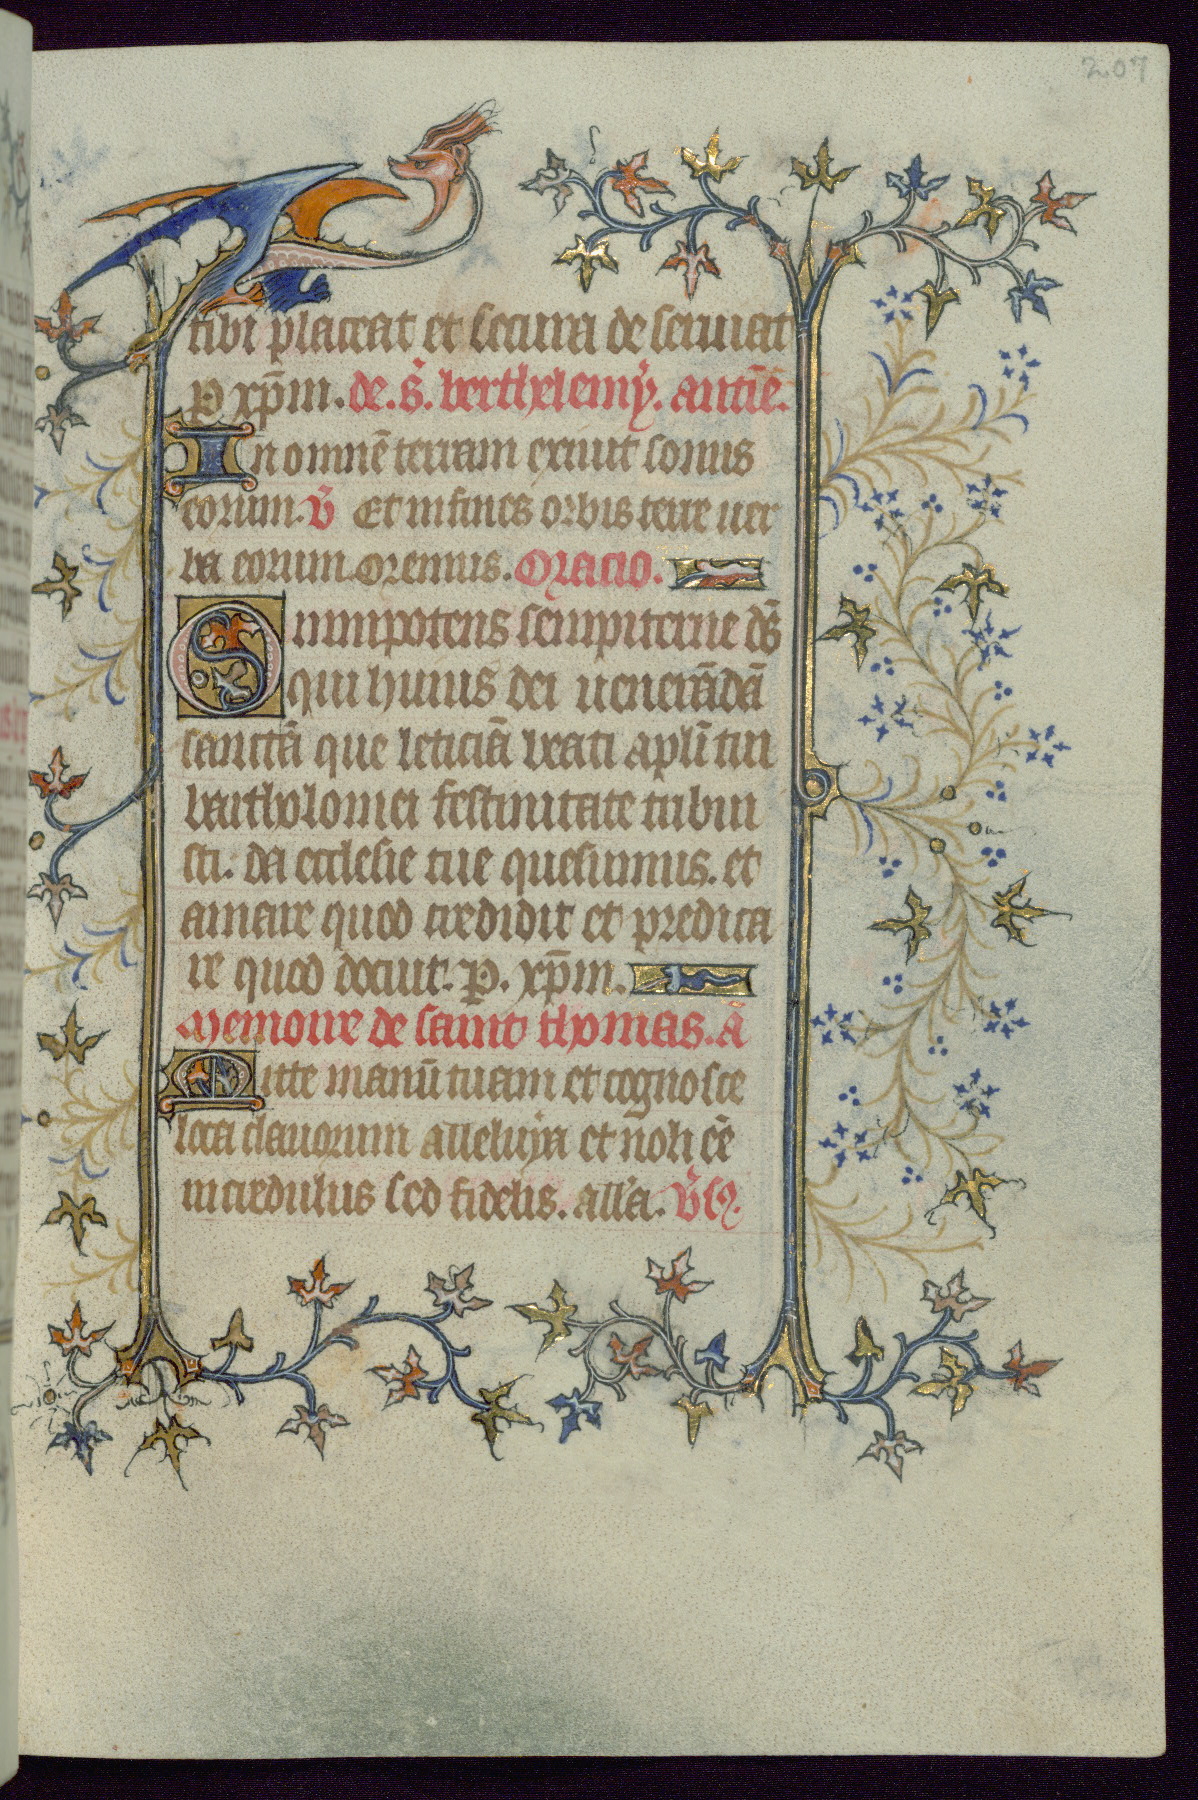 207
tibi placeat et secura de seruiat
p xp̄m. de. s̄. berthelemỹ. antiē.
In omnē terram exiuit sonus
eorum. v̄ Et in fines orbis terre uer
ba eorum. oremus. Oracio.
Omnipotens sempiterne d̄s
qui huius dei uenerādā
sanctā que leticiā beati apl̄i tui
bartholomei festiuitate tribui
sti. da ecclesie tue quesumus. et
amare quod credidit et predica
re quod docuit. P. xp̄m.
Memoire de saint thomas. ā
Mitte manū tuam et cognosce
loca clauorum alleluya et noli ēē
incredulus sed fidelis. all'a. v̄s.